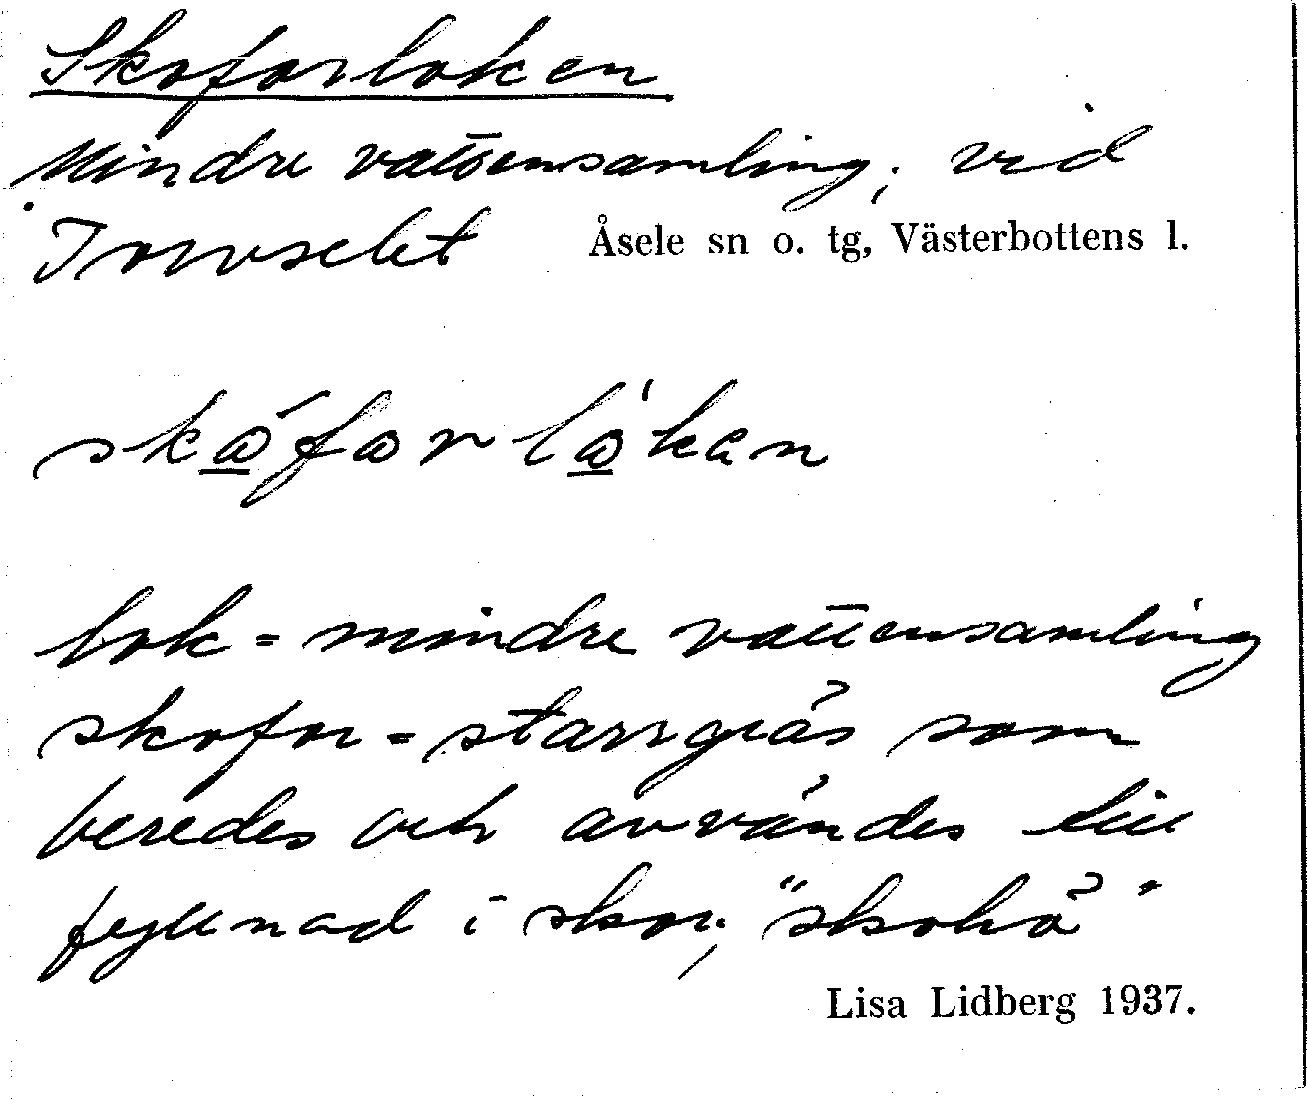 Skoforloken
Mindre vattensamling, vid
Torvselet Åsele sn o. tg, Västerbottens l.
skofor lokęn
lok = mindre vattensamling
skofor = starrgräs som
beredes och användes till
fyllnad i skor, "skohö"
Lisa Lidberg 1937.